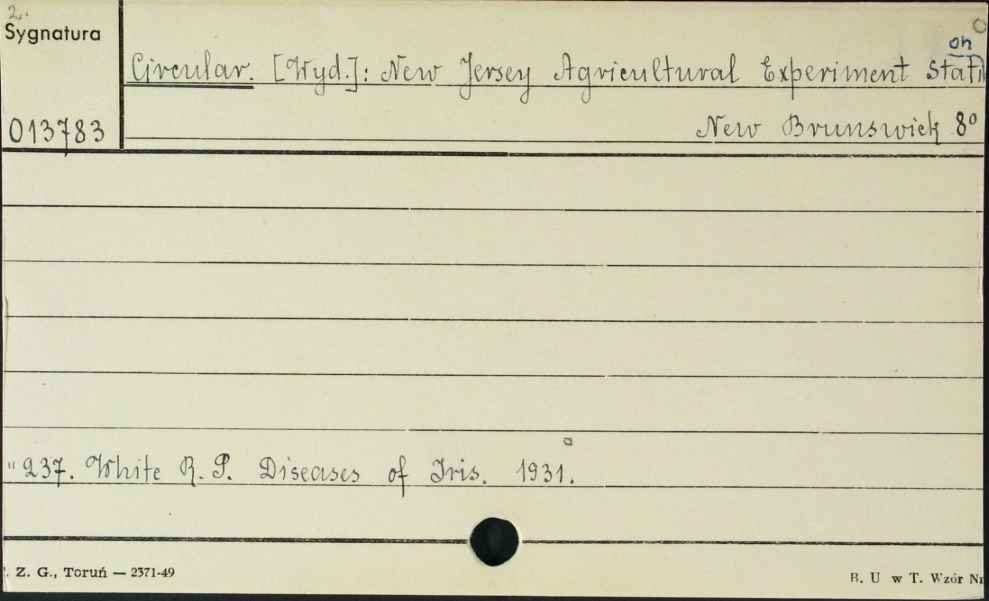 2.
Sygnatura
013783
Circular. [Wyd.]: New Jersey Agricultural Experiment Station
New Brunswick 8°
" 237. White R. P. Diseases of Iris. 1931.
Z. G., Toruń — 2371-49
B. U w T. Wzór Nr